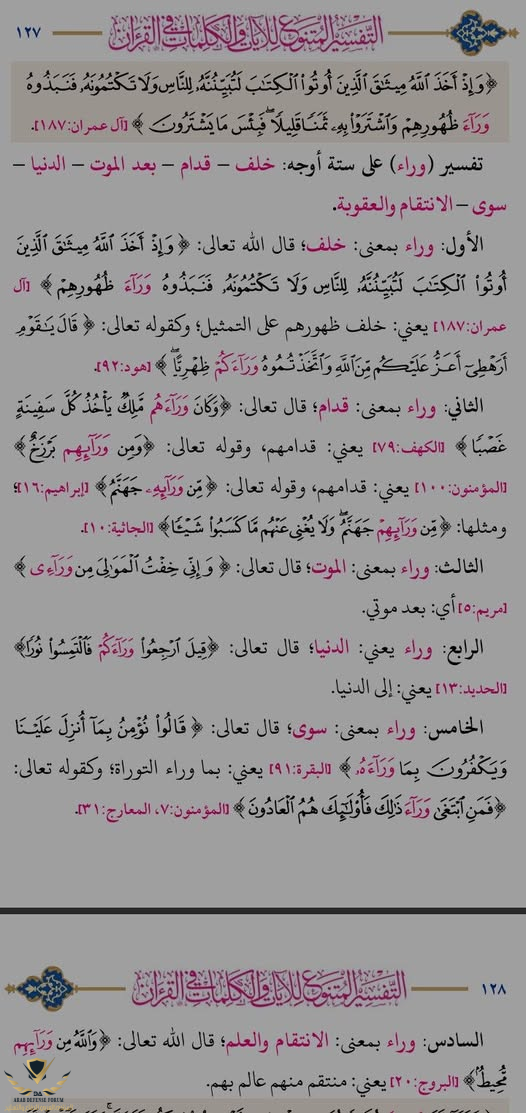 ١٢٧
التفسير المتنوع للآيات والكلمات في القرآن
﴿وَإِذْ أَخَذَ ٱللَّهُ مِيثَٰقَ ٱلَّذِينَ أُوتُوا۟ ٱلْكِتَٰبَ لَتُبَيِّنُنَّهُۥ لِلنَّاسِ وَلَا تَكْتُمُونَهُۥ فَنَبَذُوهُ
وَرَآءَ ظُهُورِهِمْ وَٱشْتَرَوْا۟ بِهِۦ ثَمَنًا قَلِيلًا ۖ فَبِئْسَ مَا يَشْتَرُونَ ﴾ [آل عمران:١٨٧].
تفسير (وراء) على ستة أوجه: خلف – قدام – بعد الموت – الدنيا –
سوى – الانتقام والعقوبة.
الأول: وراء بمعنى: خلف؛ قال الله تعالى: ﴿ وَإِذْ أَخَذَ ٱللَّهُ مِيثَٰقَ ٱلَّذِينَ
أُوتُوا۟ ٱلْكِتَٰبَ لَتُبَيِّنُنَّهُۥ لِلنَّاسِ وَلَا تَكْتُمُونَهُۥ فَنَبَذُوهُ وَرَآءَ ظُهُورِهِمْ ﴾ [آل
عمران:١٨٧] يعني: خلف ظهورهم على التمثيل؛ وكقوله تعالى: ﴿ قَالَ يَٰقَوْمِ
أَرَهْطِىٓ أَعَزُّ عَلَيْكُم مِّنَ ٱللَّهِ وَٱتَّخَذْتُمُوهُ وَرَآءَكُمْ ظِهْرِيًّا ۖ ﴾ [هود:٩٢].
الثاني: وراء بمعنى: قدام؛ قال تعالى: ﴿وَكَانَ وَرَآءَهُم مَّلِكٌ يَأْخُذُ كُلَّ سَفِينَةٍ
غَصْبًا ﴾ [الكهف:٧٩] يعني: قدامهم، وقوله تعالى: ﴿وَمِن وَرَآئِهِم بَرْزَخٌ﴾
[المؤمنون:١٠٠] يعني: قدامهم، وقوله تعالى: ﴿مِّن وَرَآئِهِۦ جَهَنَّمُ﴾ [إبراهيم:١٦]؛
ومثلها: ﴿مِّن وَرَآئِهِمْ جَهَنَّمُ ۖ وَلَا يُغْنِى عَنْهُم مَّا كَسَبُوا۟ شَيْـًٔا﴾ [الجاثية:١٠].
الثالث: وراء بمعنى: الموت؛ قال تعالى: ﴿ وَإِنِّى خِفْتُ ٱلْمَوَٰلِىَ مِن وَرَآءِى ﴾
[مريم:٥] أي: بعد موتي.
الرابع: وراء يعني: الدنيا؛ قال تعالى: ﴿قِيلَ ٱرْجِعُوا۟ وَرَآءَكُمْ فَٱلْتَمِسُوا۟ نُورًا﴾
[الحديد:١٣] يعني: إلى الدنيا.
الخامس: وراء بمعنى: سوى؛ قال تعالى: ﴿ قَالُوا۟ نُؤْمِنُ بِمَآ أُنزِلَ عَلَيْنَا
وَيَكْفُرُونَ بِمَا وَرَآءَهُۥ ﴾ [البقرة:٩١] يعني: بما وراء التوراة؛ وكقوله تعالى:
﴿فَمَنِ ٱبْتَغَىٰ وَرَآءَ ذَٰلِكَ فَأُو۟لَٰٓئِكَ هُمُ ٱلْعَادُونَ ﴾ [المؤمنون:٧، المعارج:٣١].
١٢٨
التفسير المتنوع للآيات والكلمات في القرآن
السادس: وراء بمعنى: الانتقام والعلم؛ قال الله تعالى: ﴿وَٱللَّهُ مِن وَرَآئِهِم
مُّحِيطٌۢ﴾ [البروج:٢٠] يعني: منتقم منهم عالم بهم.
ARAB DEFENSE FORUM